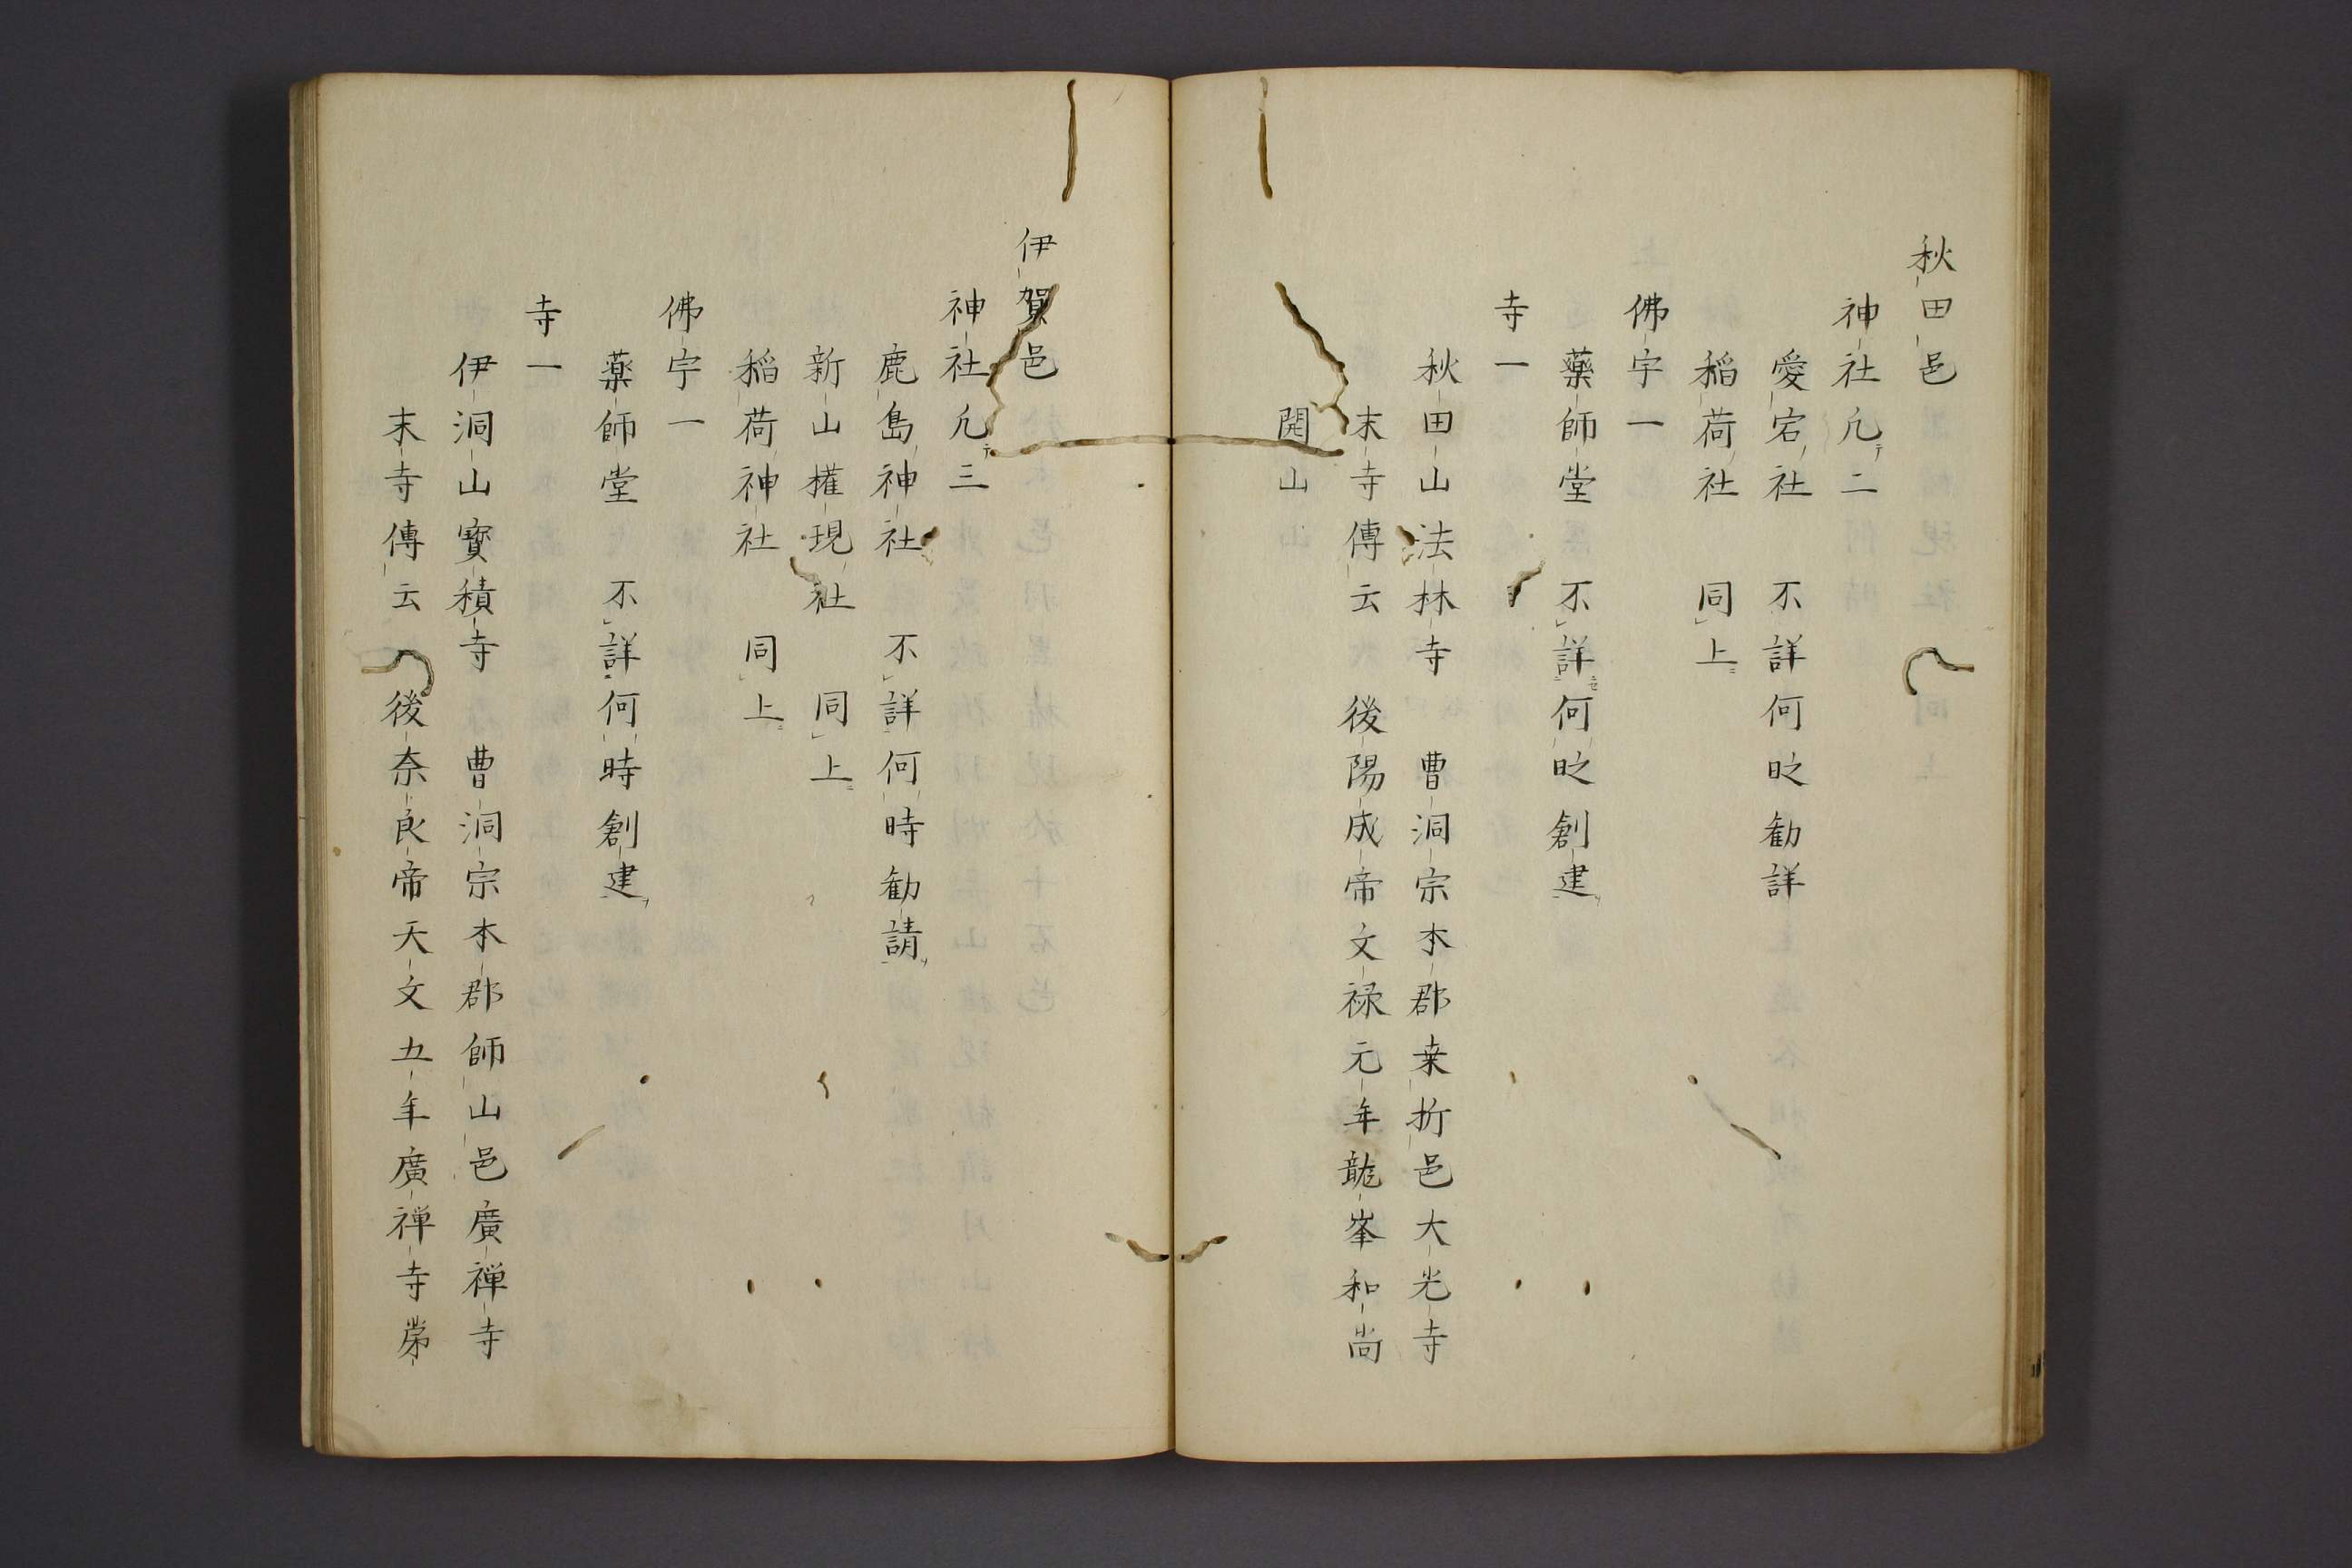 秋田邑
神社凢二
愛宕社　不詳何时勧詳
稲荷社　同上
佛宇一
藥師堂　不詳何时創建
寺一
秋田山法林寺　曹洞宗本郡桒折邑大光寺
末寺傳云　後陽成帝文禄元年龍峯和尚
開山
伊賀邑
神社凢三
鹿島神社　不詳何時勧請
新山權現社　同上
稲荷神社　同上
佛宇一
薬師堂　不詳何時創建
寺一
伊洞山寳積寺　曹洞宗本郡師山邑廣禅寺
末寺傳云　後奈良帝天文五年廣禅寺苐